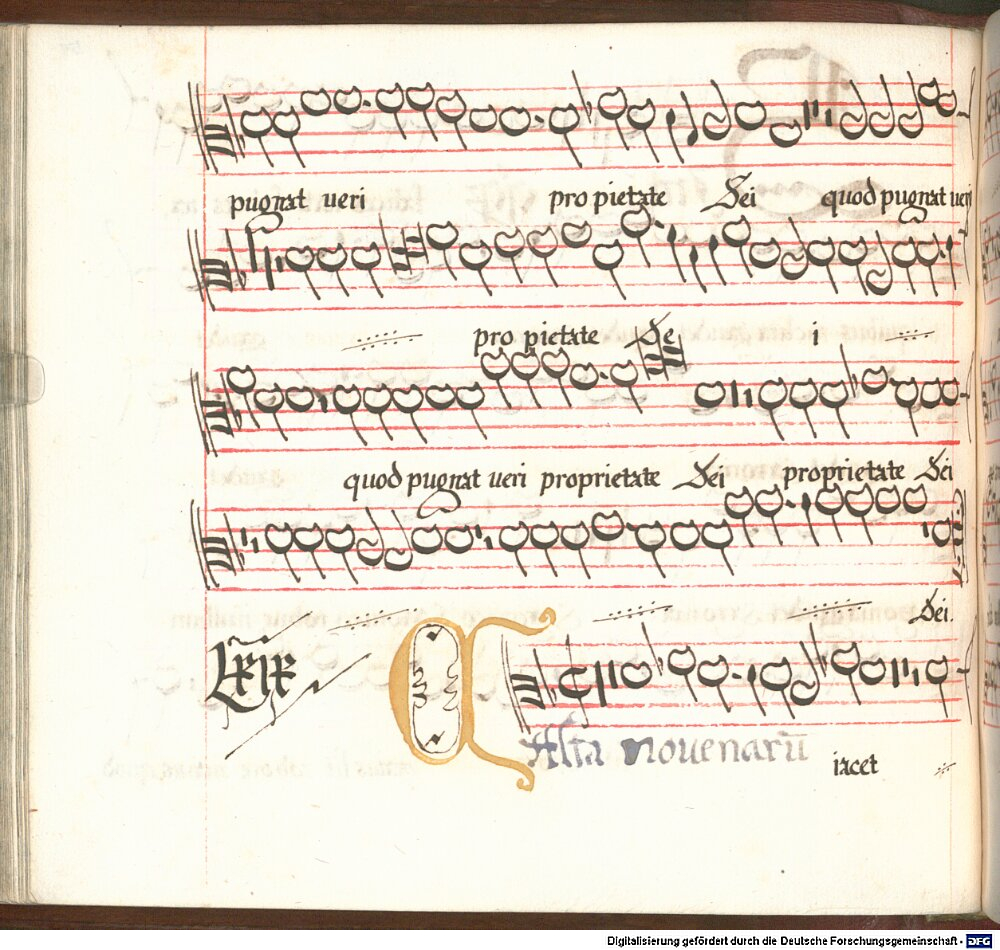 pugnat veri pro pietate Dei quod pugnat veri
pro pietate De i
quod pugnat veri proprietate Dei proprietate Dei
Dei.
LXIX
Alta novenarū
iacet
Digitalisierung gefördert durch die Deutsche Forschungsgemeinschaft - DFG